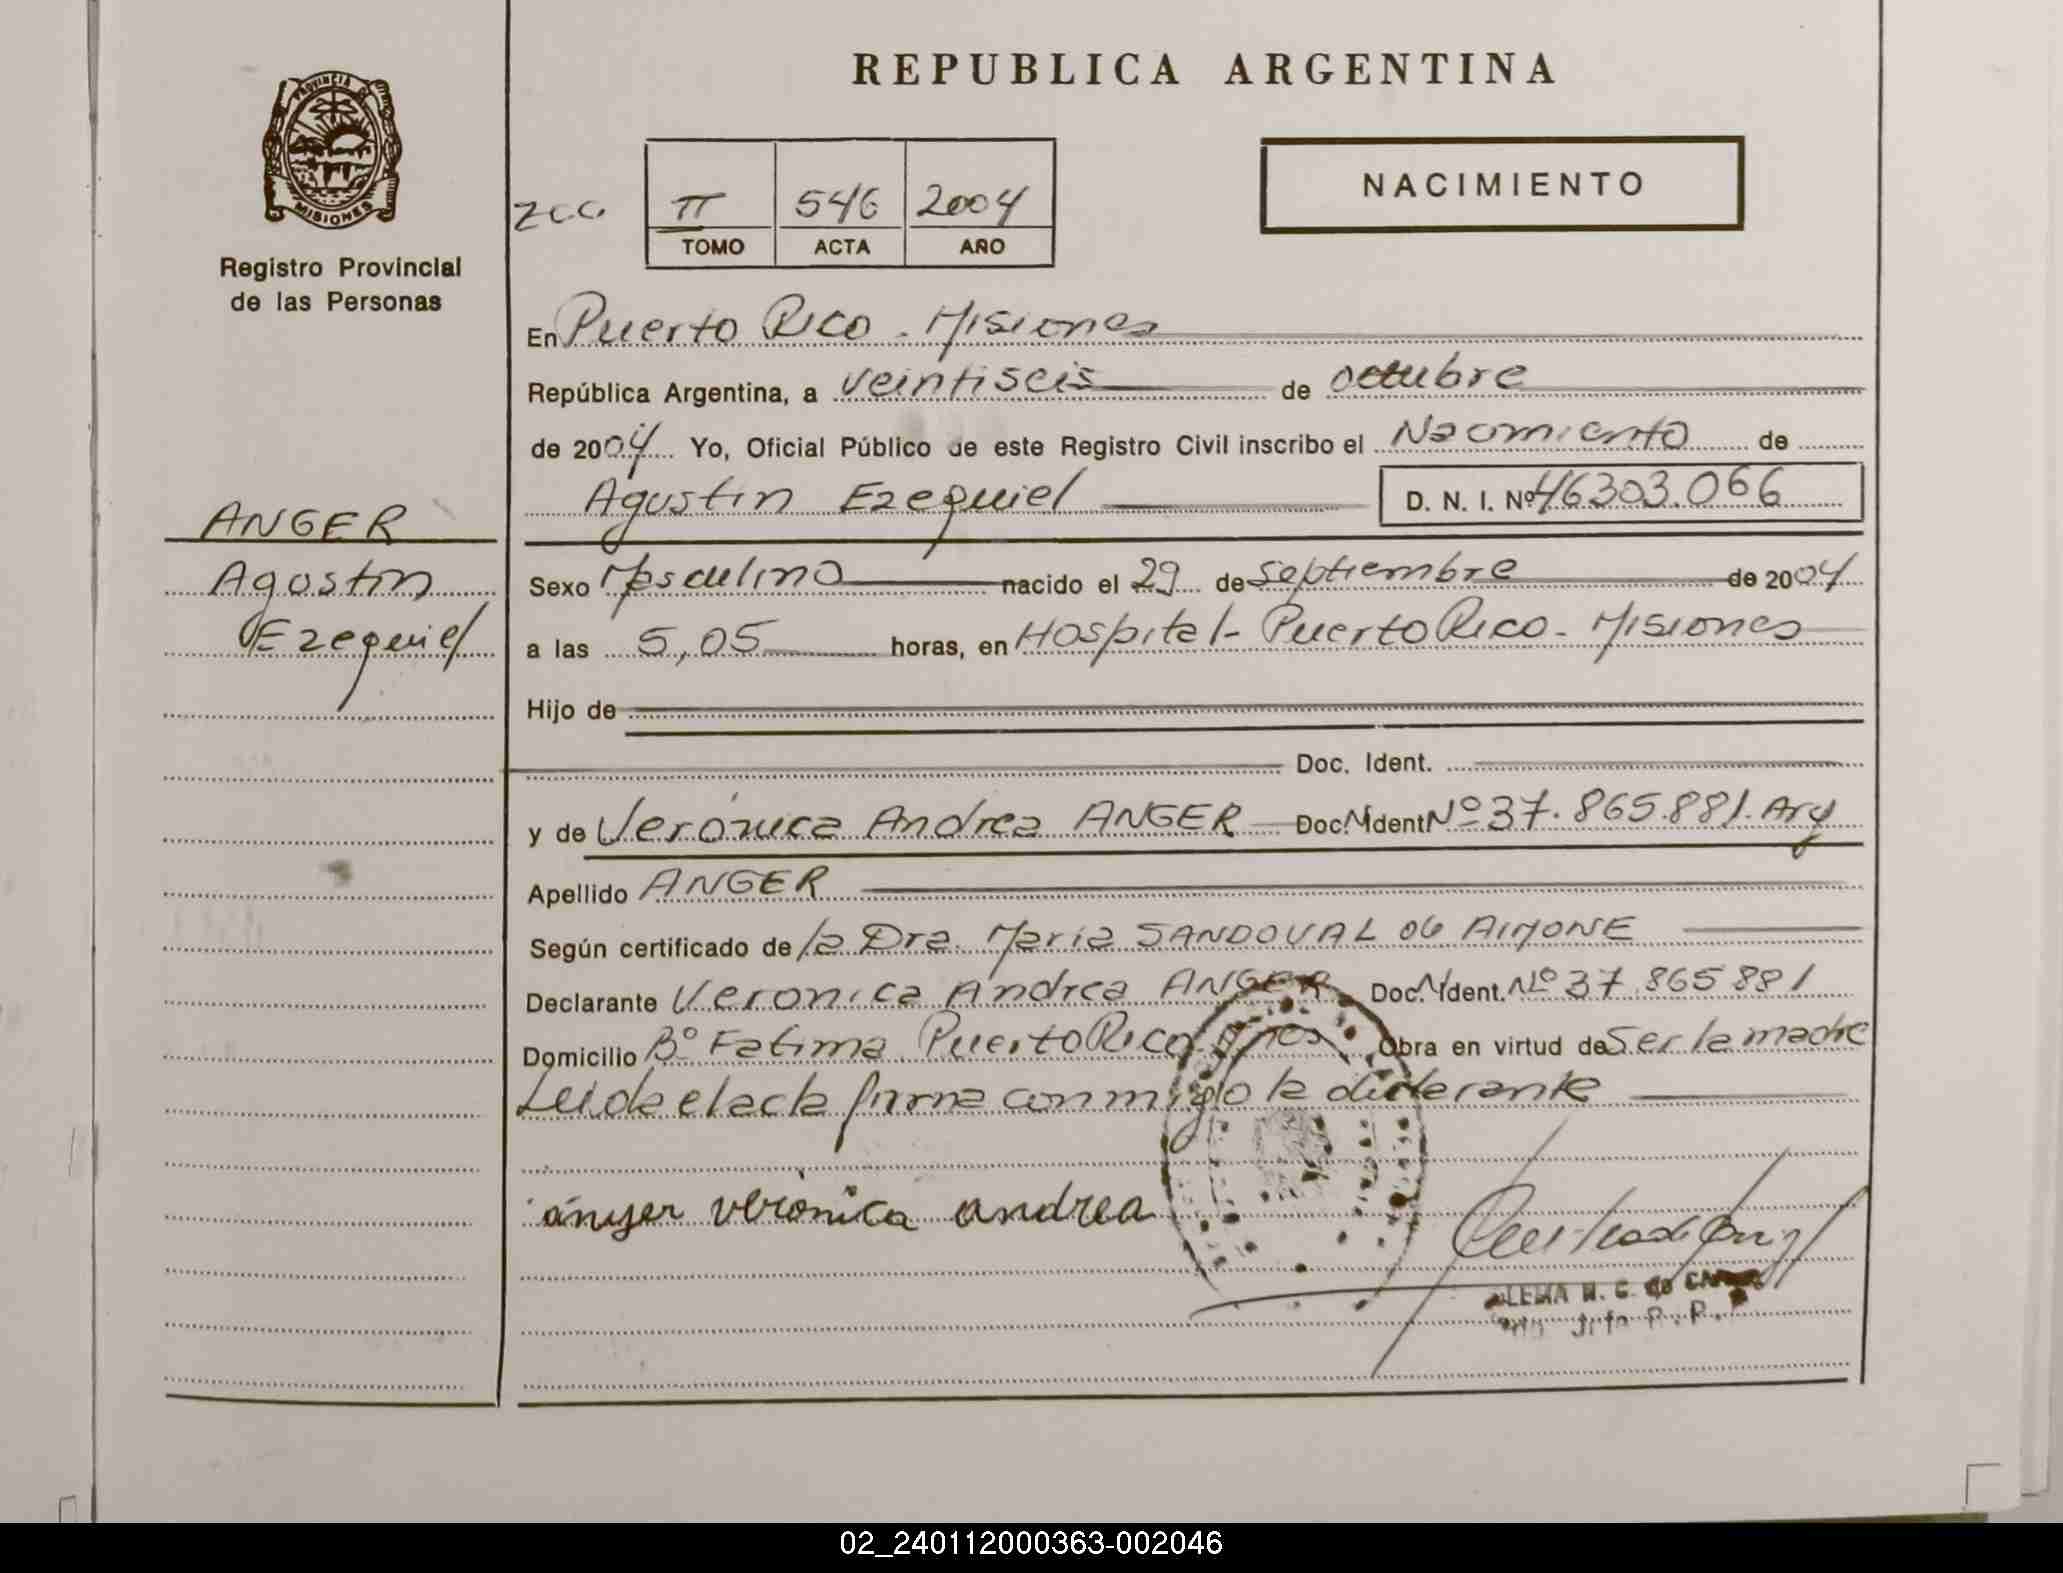 REPUBLICA ARGENTINA
PROVINCIA DE
MISIONES
Registro Provincial
de las Personas
NACIMIENTO
II 546 2004
TOMO ACTA AÑO
En Puerto Rico - Misiones
República Argentina, a veintiseis de octubre
de 2004 Yo, Oficial Público de este Registro Civil inscribo el Nacimiento de
Agustin Ezequiel D. N. I. Nº 46303.066
ANGER
Agostin
Ezequiel
Sexo Masculino nacido el 29 de Septiembre de 2004
a las 5,05 horas, en Hospital - Puerto Rico - Misiones
Hijo de
Doc. Ident.
y de Verónica Andrea ANGER Doc. N. Ident Nº 37.865.881. Arg
Apellido ANGER
Según certificado de la Dra. Maria SANDOVAL de AIMONE
Declarante Veronica Andrea ANGER Doc. N. Ident. Nº 37 865 881
Domicilio Bº Fatima Puerto Rico Mnes Obra en virtud de Ser la madre
Leida el acta firma conmigo la declarante
anger veronica andrea